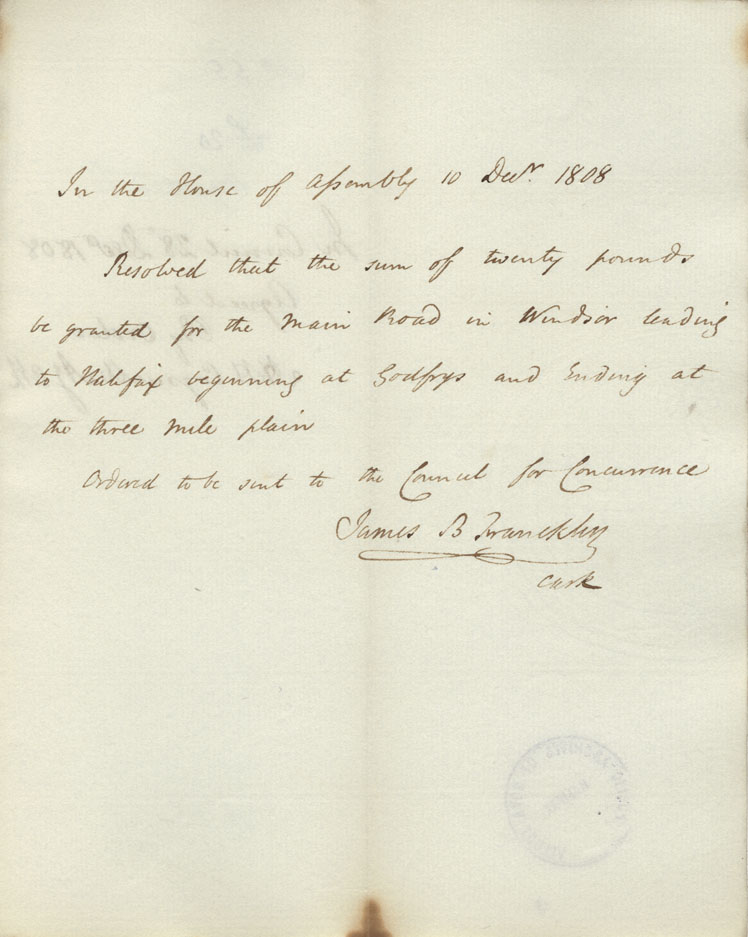 In the House of Assembly 10 Decr. 1808
Resolved that the sum of twenty pounds
be granted for the Main Road in Windsor leading
to Halifax beginning at Godfrys and Ending at
the three Mile plain
Ordered to be sent to the Council for Concurrence
James B Franckley
Clerk